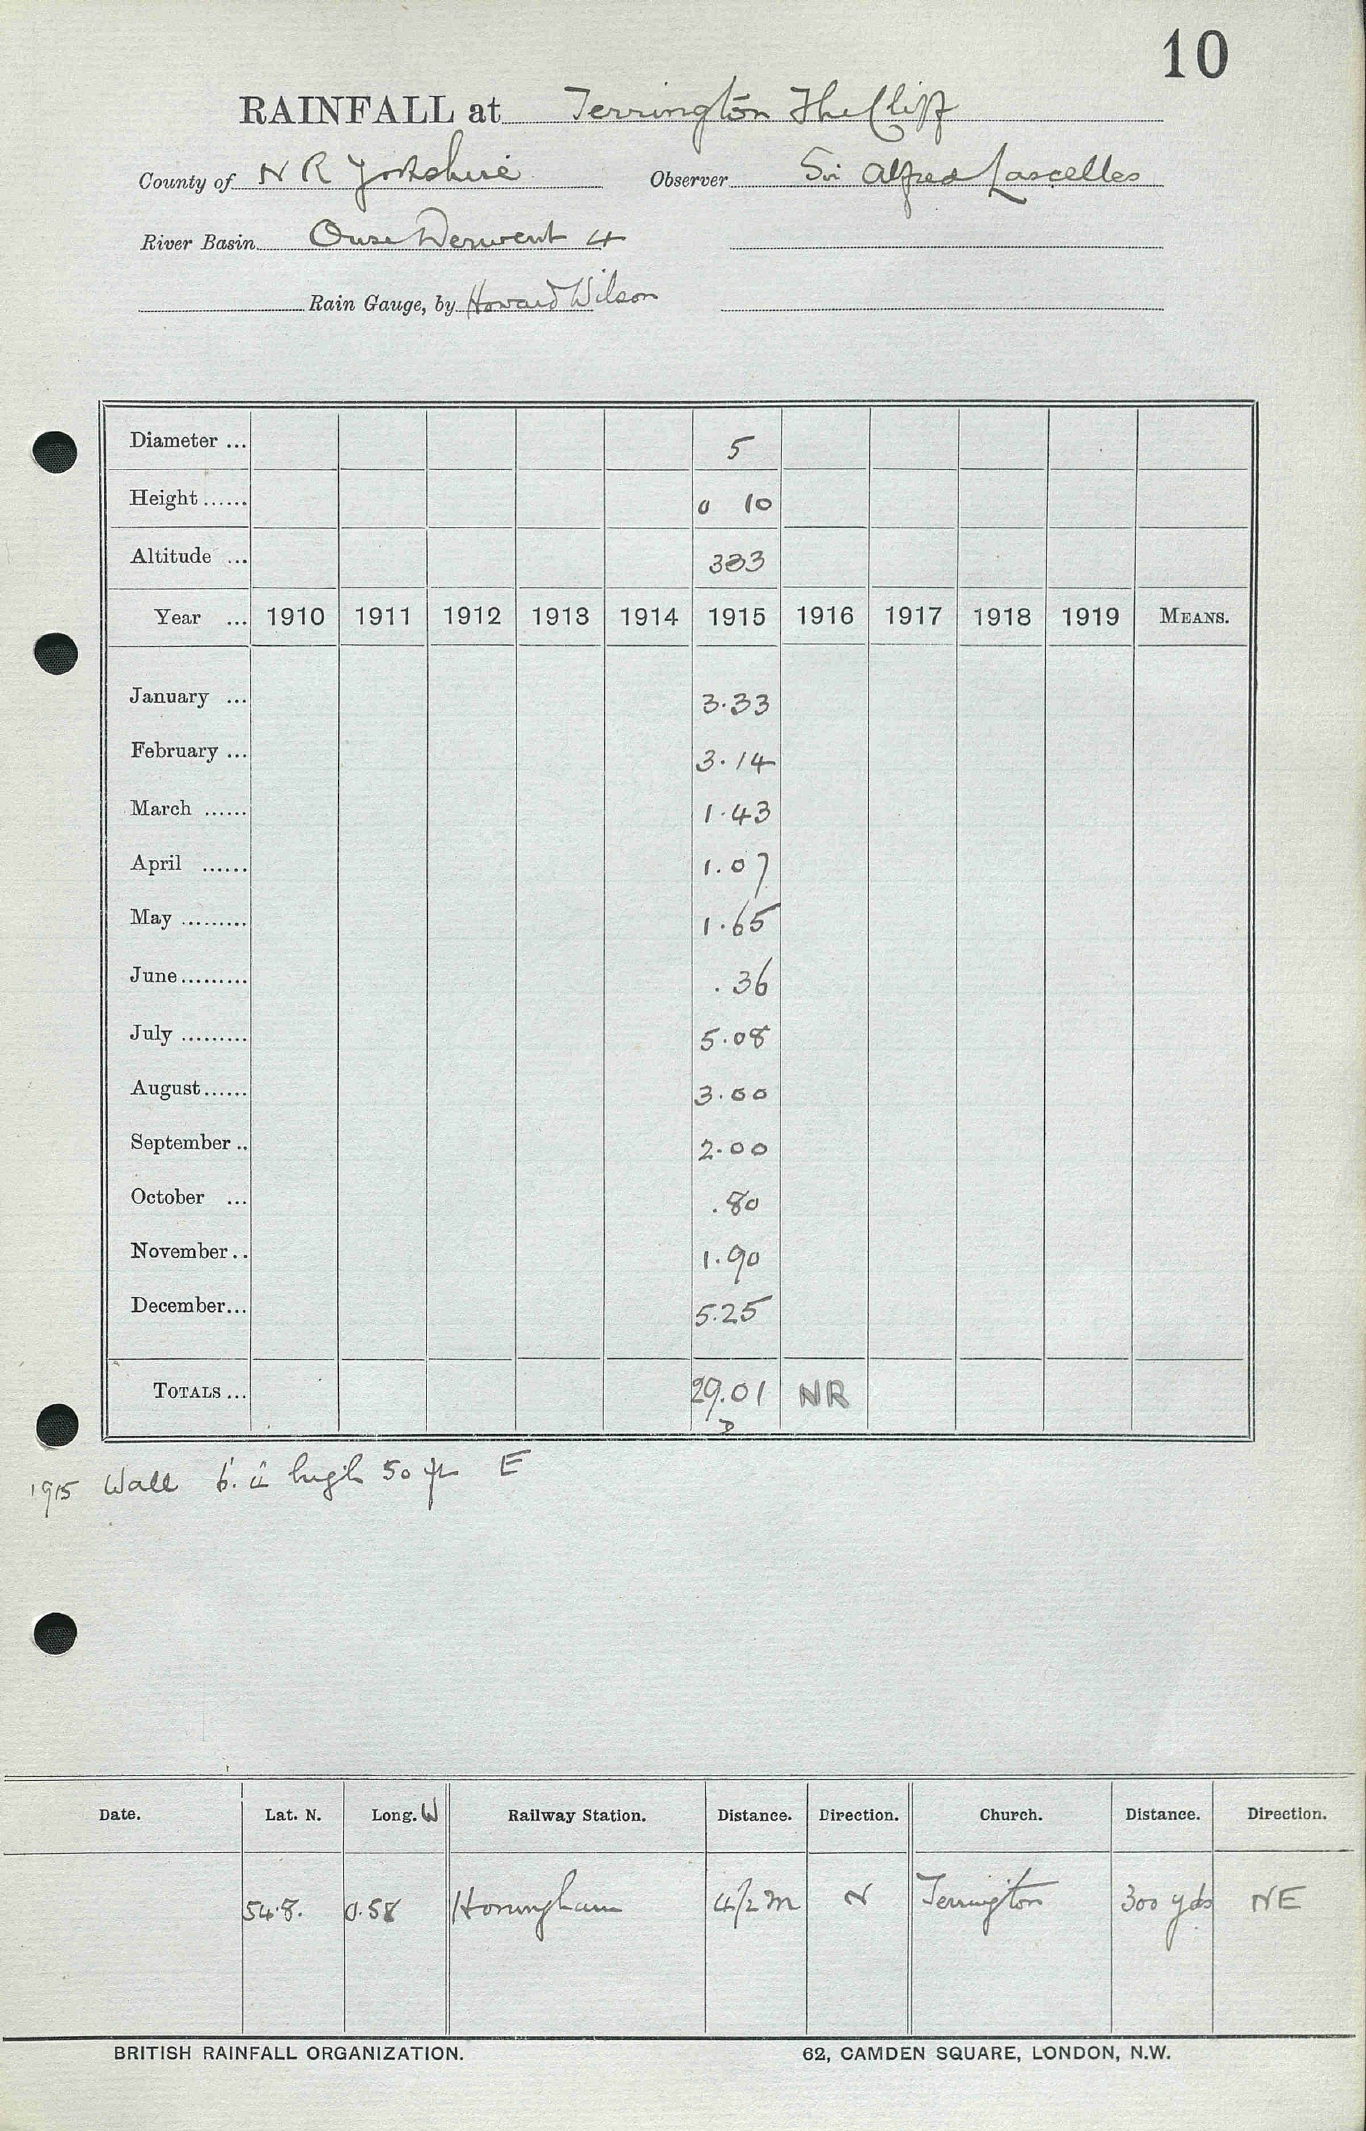 10
RAINFALL at Terrington The Cliff
County of N R Yorkshire Observer Sir Alfred Lascelles
River Basin Ouse Derwent 4
Rain Gauge, by Howard Wilson
Diameter ... 5
Height ...... 0 10
Altitude ... 333
Year ... 1910 1911 1912 1913 1914 1915 1916 1917 1918 1919 MEANS.
January ... 3.33
February ... 3.14
March ...... 1.43
April ...... 1.07
May ......... 1.65
June ......... .36
July ......... 5.08
August ...... 3.00
September .. 2.00
October ... .80
November .. 1.90
December ... 5.25
TOTALS ... 29.01 NR
D
1915 Wall high 50 ft E
Date. Lat. N. Long. W Railway Station. Distance. Direction. Church. Distance. Direction.
54.8. 0.58 Hovingham 4½ m N Terrington 300 yds NE
BRITISH RAINFALL ORGANIZATION. 62, CAMDEN SQUARE, LONDON, N.W.